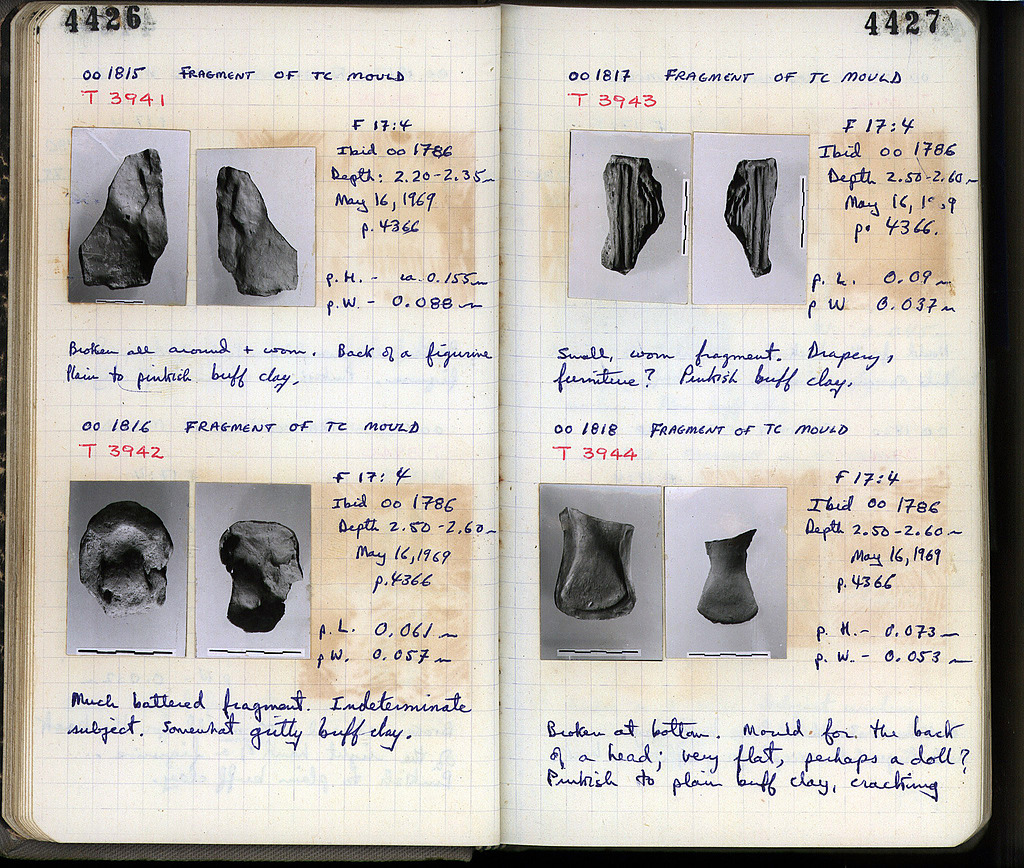 4426
oo 1815 FRAGMENT OF TC MOULD
T 3941
F 17:4
Ibid oo 1786
Depth: 2.20-2.35m
May 16, 1969
p. 4366
p. H. - ca. 0.155m
p. W. - 0.088m
Broken all around + worn. Back of a figurine
Plain to pinkish buff clay.
oo 1816 FRAGMENT OF TC MOULD
T 3942
F 17:4
Ibid oo 1786
Depth 2.50-2.60m
May 16, 1969
p. 4366
p. L. 0.061m
p W. 0.057m
Much battered fragment. Indeterminate
subject. Somewhat gritty buff clay.
4427
oo 1817 FRAGMENT OF TC MOULD
T 3943
F 17:4
Ibid oo 1786
Depth 2.50-2.60m
May 16, 1969
p. 4366.
p. L. 0.09m
p W 0.037m
Small, worn fragment. Drapery,
furniture? Pinkish buff clay.
oo 1818 FRAGMENT OF TC MOULD
T 3944
F 17:4
Ibid oo 1786
Depth 2.50-2.60m
May 16, 1969
p. 4366
p. H. - 0.073m
p. W. - 0.053m
Broken at bottom. Mould for the back
of a head; very flat, perhaps a doll?
Pinkish to plain buff clay, cracking